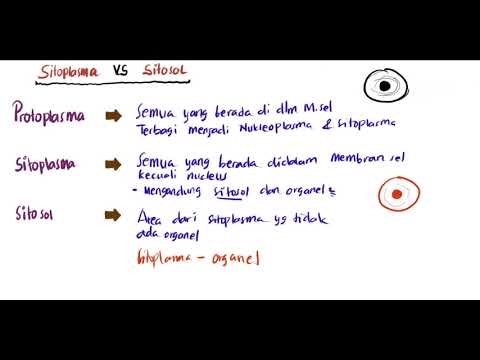 Sitoplasma VS Sitosol
Protoplasma → Semua yang berada di dlm M.sel
Terbagi menjadi Nukleoplasma & Sitoplasma
Sitoplasma → Semua yang berada didalam Membran sel
kecuali nucleus
- Mengandung sitosol dan organel2
Sitosol → Area dari sitoplasma yg tidak
ada organel
Sitoplasma - organel